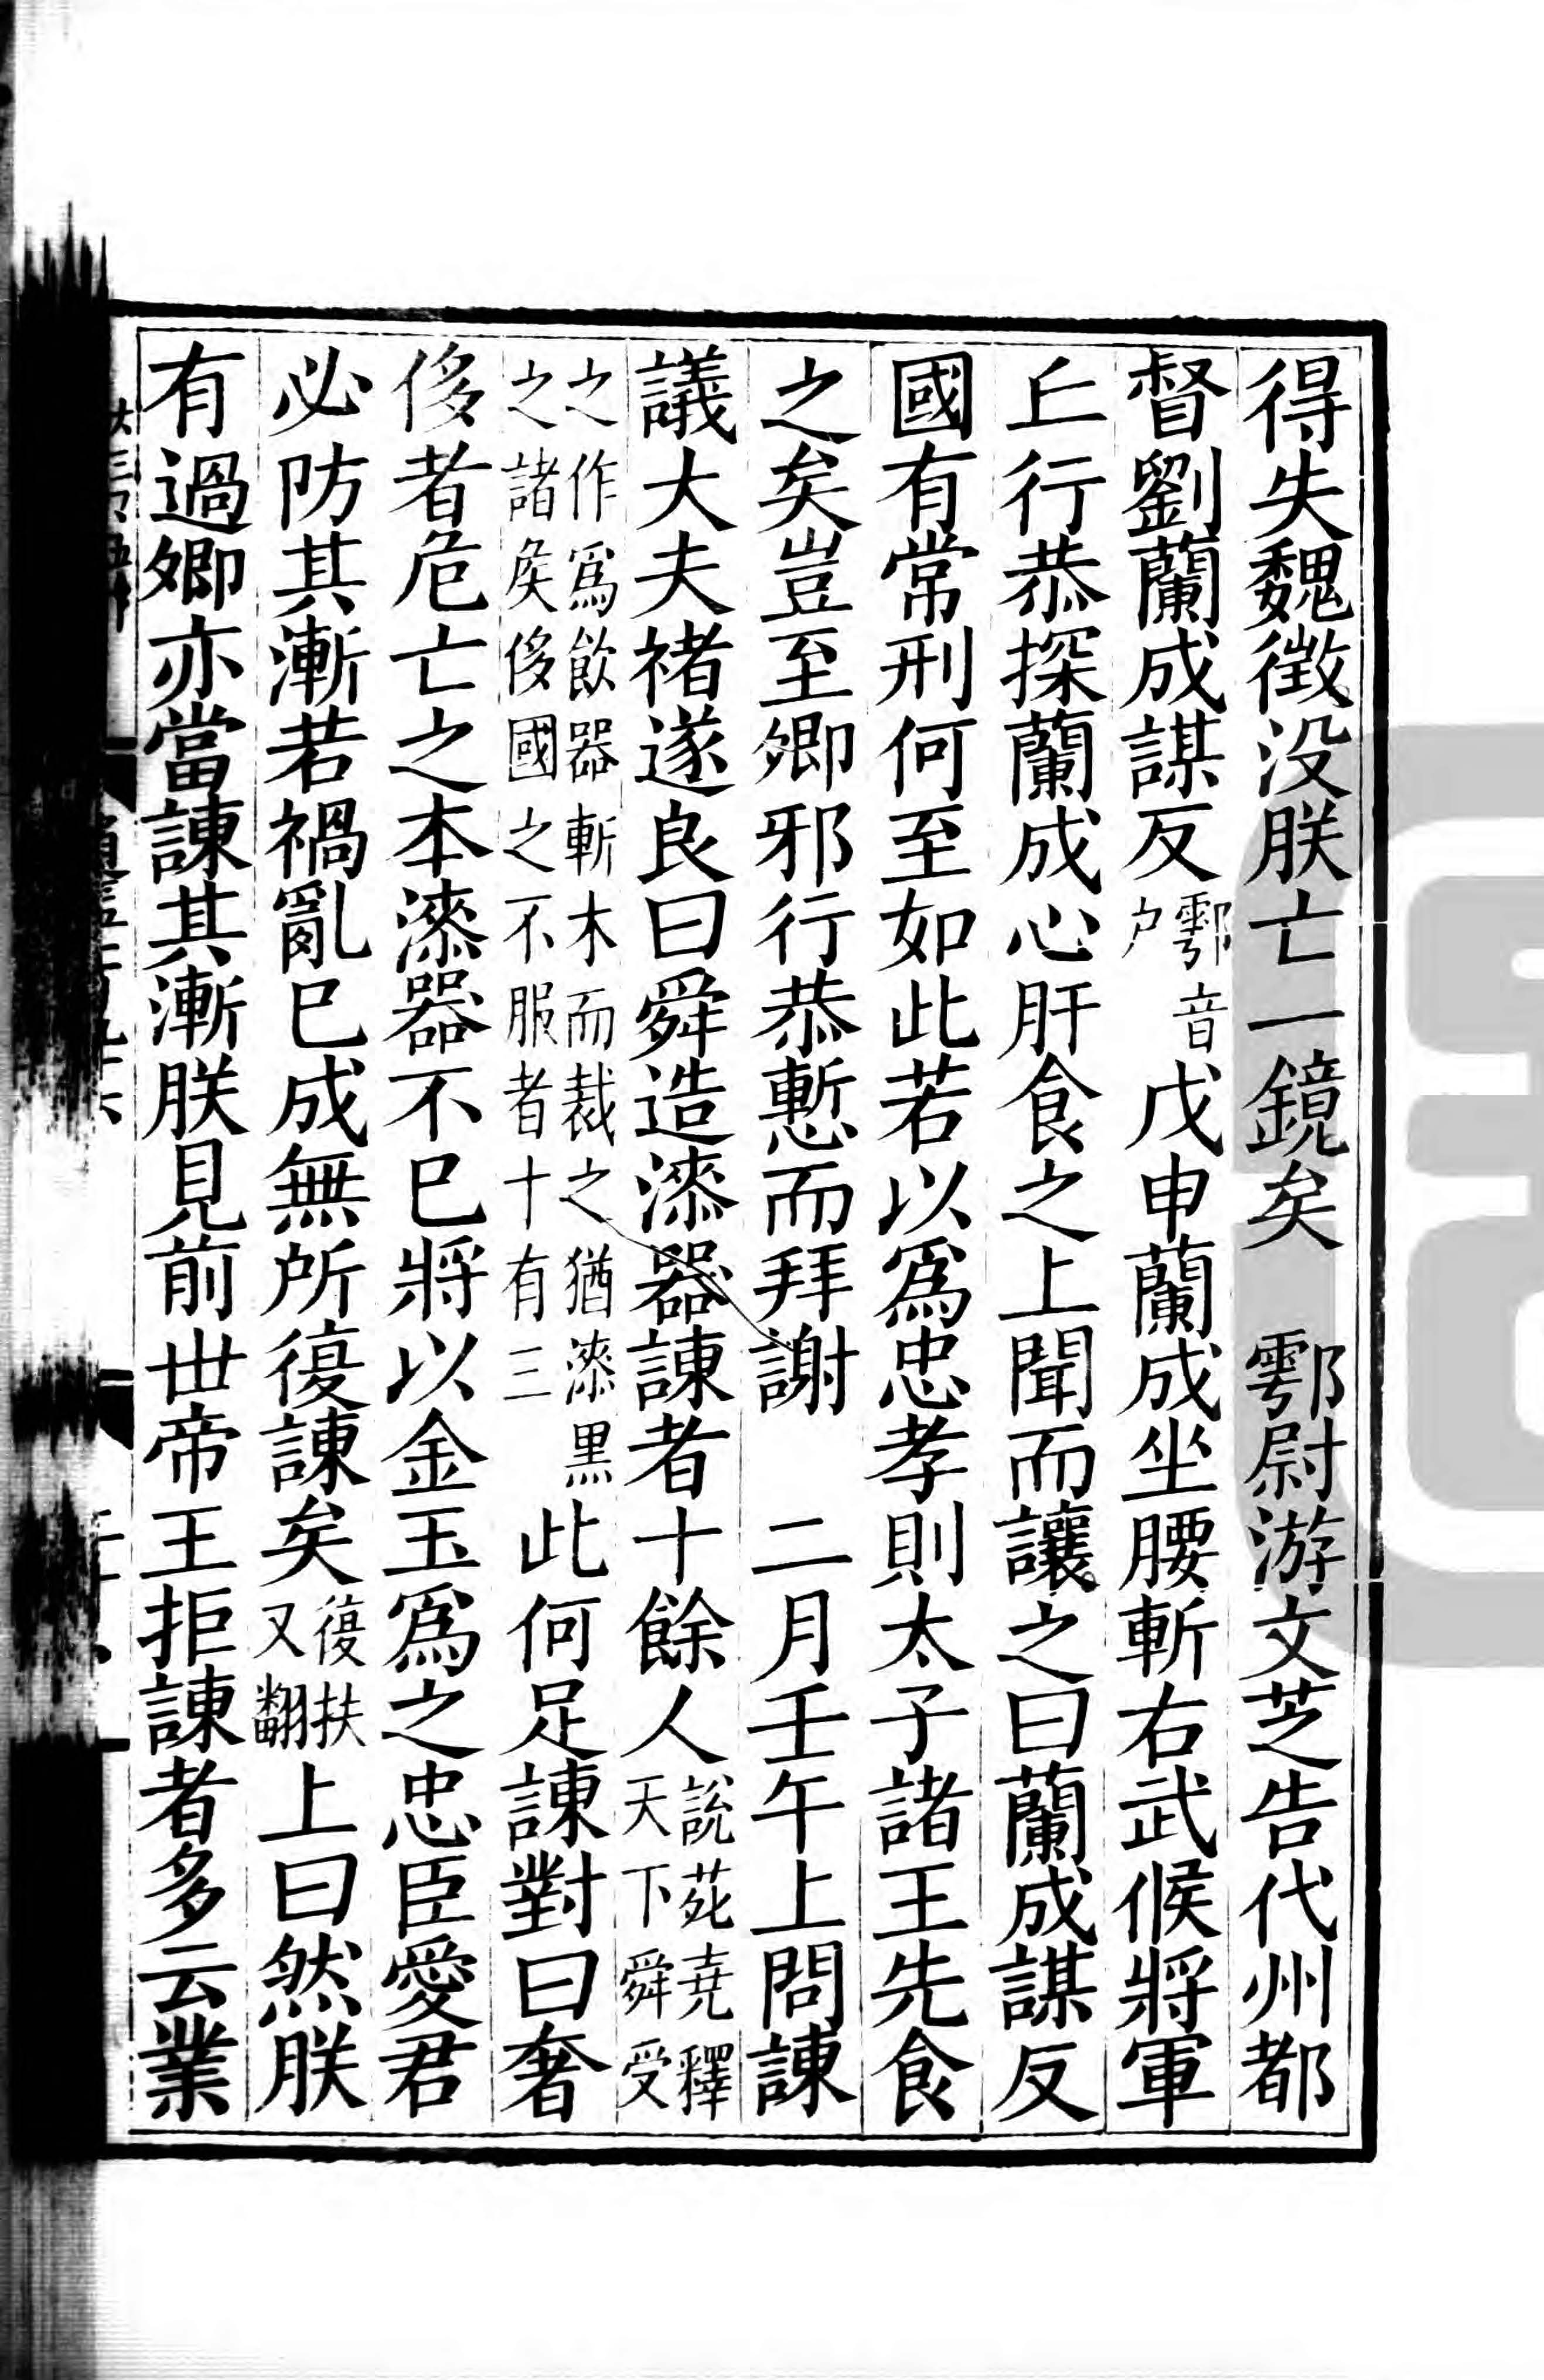 得失魏徵没朕亡一鏡矣　鄠尉游文芝告代州都
督劉蘭成謀反鄠音户戊申蘭成坐腰斬右武候將軍
丘行恭探蘭成心肝食之上聞而讓之曰蘭成謀反
國有常刑何至如此若以爲忠孝則太子諸王先食
之矣豈至卿邪行恭慙而拜謝　二月壬午上問諫
議大夫褚遂良曰舜造漆器諫者十餘人說苑堯釋天下舜受
之作爲飲器斬木而裁之猶漆黑之諸侯侈國之不服者十有三此何足諫對曰奢
侈者危亡之本漆器不已將以金玉爲之忠臣愛君
必防其漸若禍亂已成無所復諫矣復扶又翻上曰然朕
有過卿亦當諫其漸朕見前世帝王拒諫者多云業